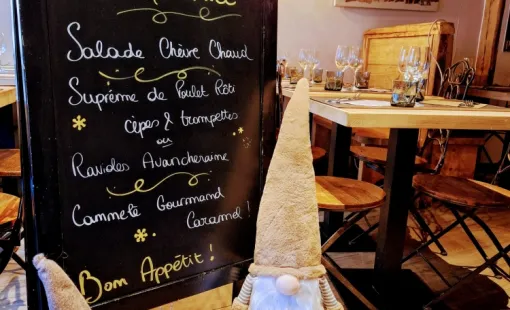 Salade Chèvre Chaud
Suprême de Poulet Rôti
cèpes & trompettes
ou
Ravioles Avancheraine
Cammelé Gourmand
Caramel !
Bom Appétit !